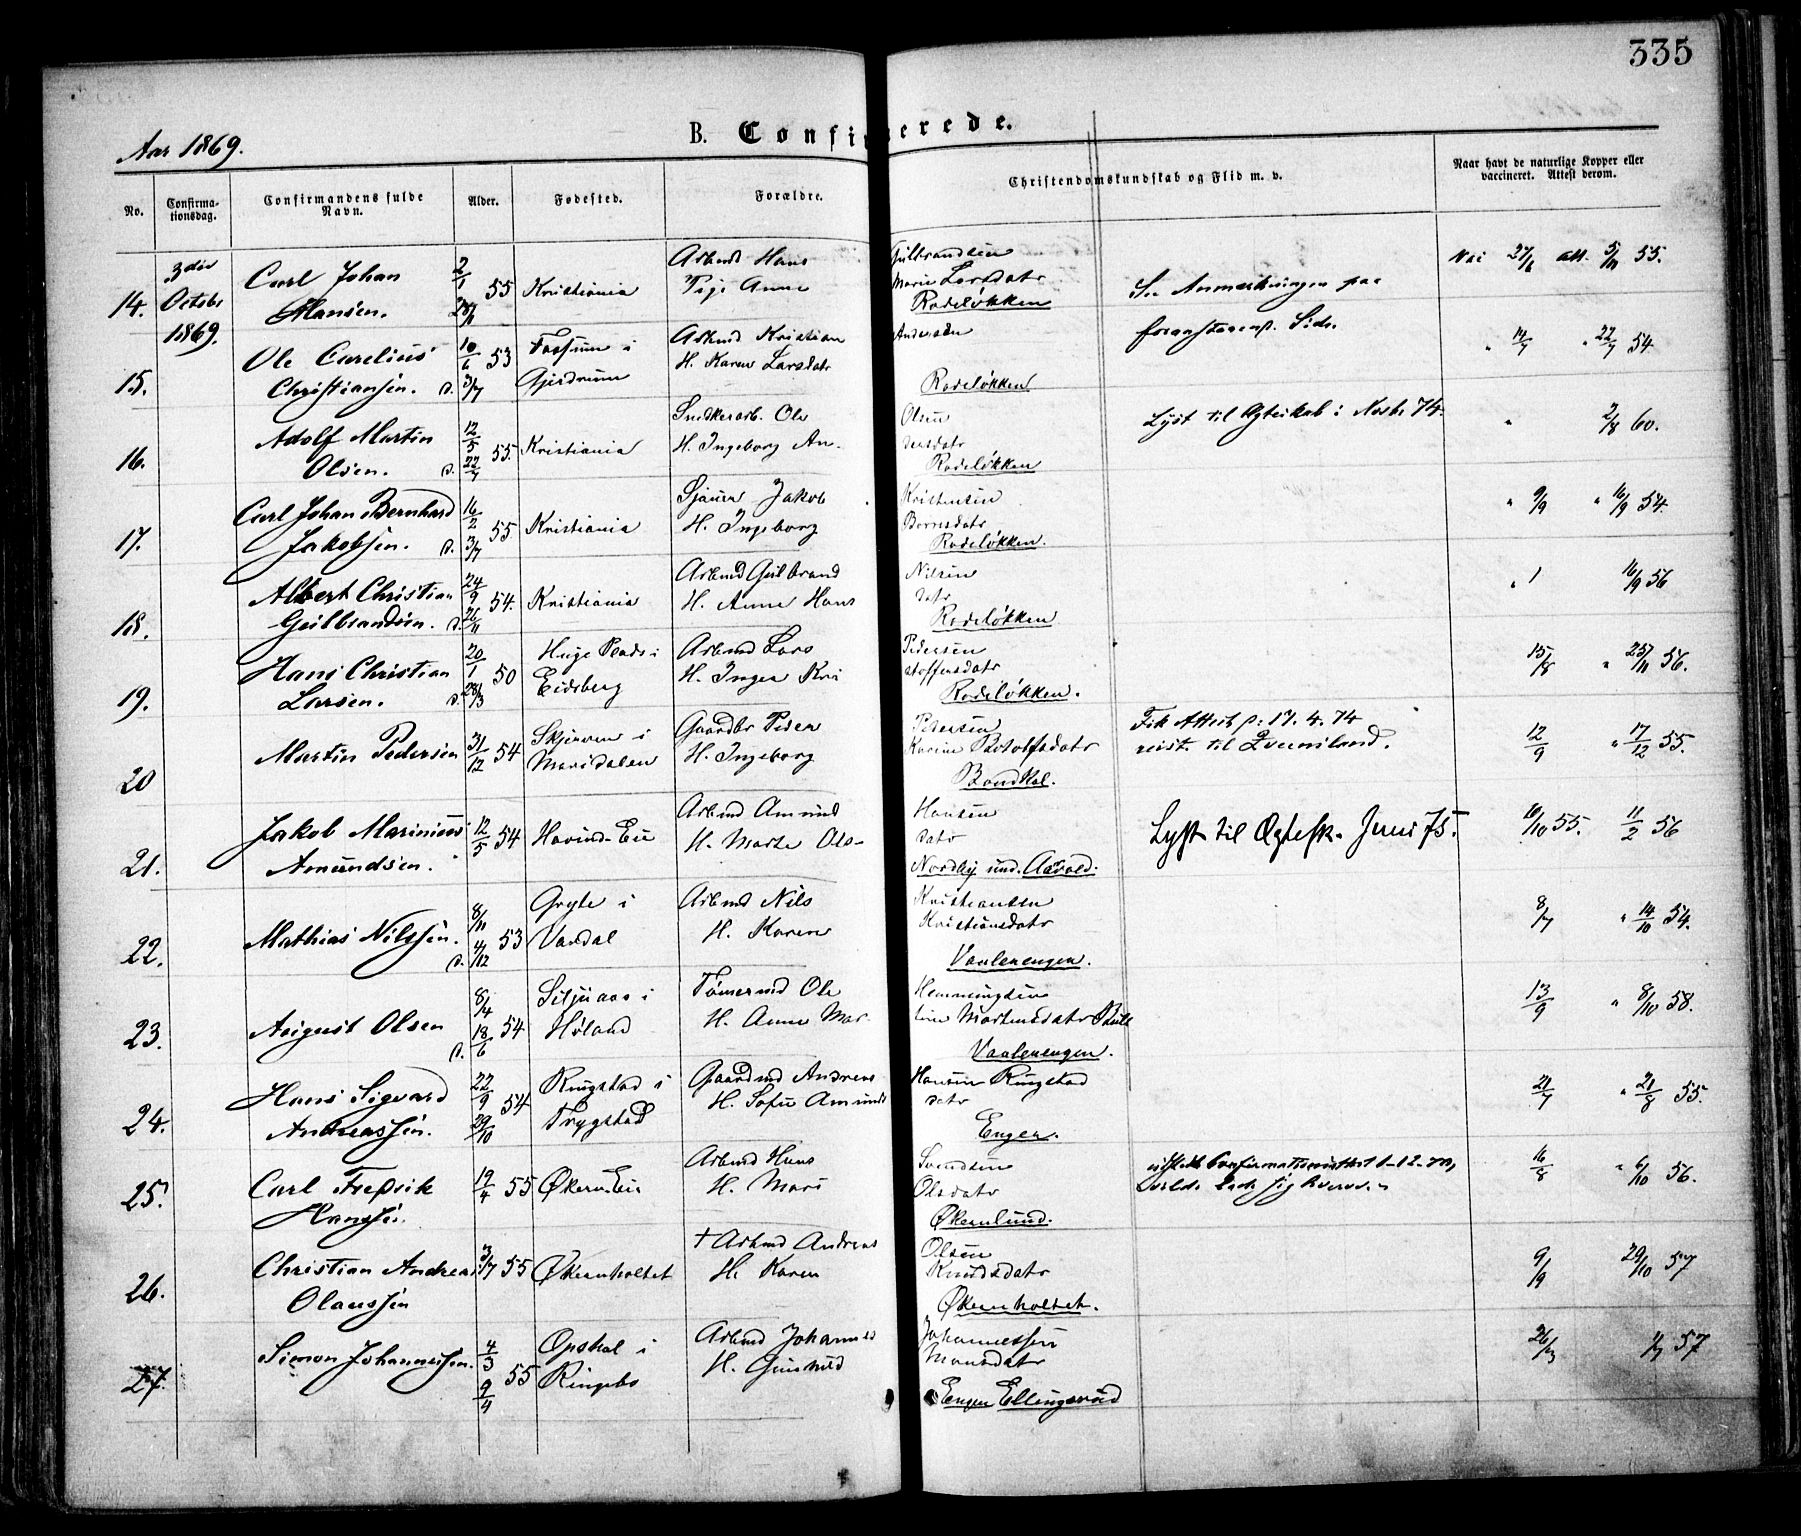 335
Aar 1869.
B. Confirmerede.
No.
Confirma-
tionsdag.
Confirmandens fulde
Navn.
Alder.
Fødested.
Forældre.
Christendomskundskab og Flid m. v.
Naar havt de naturlige Kopper eller
vaccineret. Attest derom.
3die Carl Johan 2/1 Arbmd Hans Gulbrandsen
14. Octobr Hansen. 55 Kristiania Pige Anne Marie Larsdatr Se Anmerkningen paa
1869. Rodeløkken foranstaaende Side.
Ole Carelius 10/6 53 Fossum i Arbmd Kristian Andersen 14/7 " 22/7 54.
15. Christiansen. d. 3/7 Gjerdrum H. Karen Larsdatr
Rodeløkken
Adolf Martin 12/5 Snedkerarb. Ole Olsen Lyst til Egteskab i Novbr 74.
16. Olsen. d. 55. Kristiania H. Ingeborg An- 2/8 60.
Rodeløkken
Carl Johan Bernhard 16/2 Sjauer Jakob Kristensen " 9/9 " 16/9 54.
17. Jakobsen. d. 3/7 55. Kristiania H. Ingeborg
Rodeløkken.
Albert Christian 24/9 Arbmd Gulbrand Nilsen 16/9 56
18. Gulbrandsen. d. 26/11 54. Kristiania H. Anne Hans datr
Rodeløkken
Hans Christian 20/1 Arbmd Lars Pedersen 15/8 " 56.
19. Larsen. d. 28/3 50 Eidsberg H. Inger Kri stoffersdatr
Rodeløkken.
Martin Pedersen 31/12 54 Skjerven i Gaardbr Peder Pedersen Fik Attest p: 17. 4. 74
20 Maridalen H. Ingeborg Karine reist til Qveensland. 12/9 " 17/12 55.
Bondkal.
Jakob Marinius 12/5 54 Hovind-Eie Arbmd Amund Hansen Lyst til Egtesk. Juni 75. 10/10 55. 11/2 56
21. Amundsen. H. Marte Ols- datr
Nordby und. Aarvold.
Gryte i Arbmd Nils Kristiansen
22. Mathias Nilssen. 8/11 53 Vardal H. Karen Kristiansdatr 8/7 " 14/10 54.
d. 4/12 Vaalerengen.
8/4 i Tømermd Ole Hemmingsen 13/9 " 8/10 58.
23. August Olsen 54 Høland H. Anne Mar- Martinsdatr
d. 18/6 Vaalerengen.
Hans Sigvard 22/9 54 Ringstad i Gaardmd Andreas Hansen Ringstad
24. Andreassen. 29/10 Trygstad H. Sofie Amunds datr 21/7 " 21/8 55.
Enger.
Carl Fredrik 19/4 55 Økern-Eie Arbmd Hans Svendsen
25. Hanssen. H. Mari Olsdatr 16/8 " 6/10 56.
Økernlund.
Christian Andreas 3/7 55 Økernholtet † Arbmd Andreas Olsen 9/9 29/10 57
26. Olaussen H. Karen Knudsdatr
Økernholtet.
Simon Johannessen. 4/3 Opshal i Arbmd Johannes Johannessen
27. 9/4 55 Ringebo H. Gunhild Monsdatr 26/3 57
Enger Ellingsrud